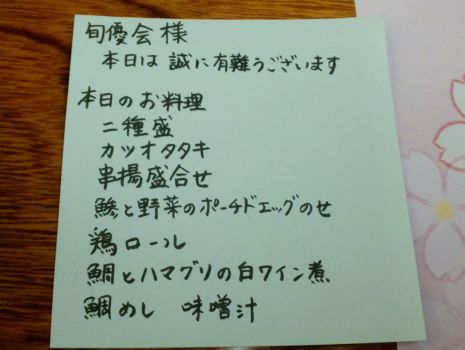 旬優会様
本日は 誠に有難うございます
本日のお料理
二種盛
カツオタタキ
串揚盛合せ
鯵と野菜のポーチドエッグのせ
鶏ロール
鯛とハマグリの白ワイン煮
鯛めし 味噌汁